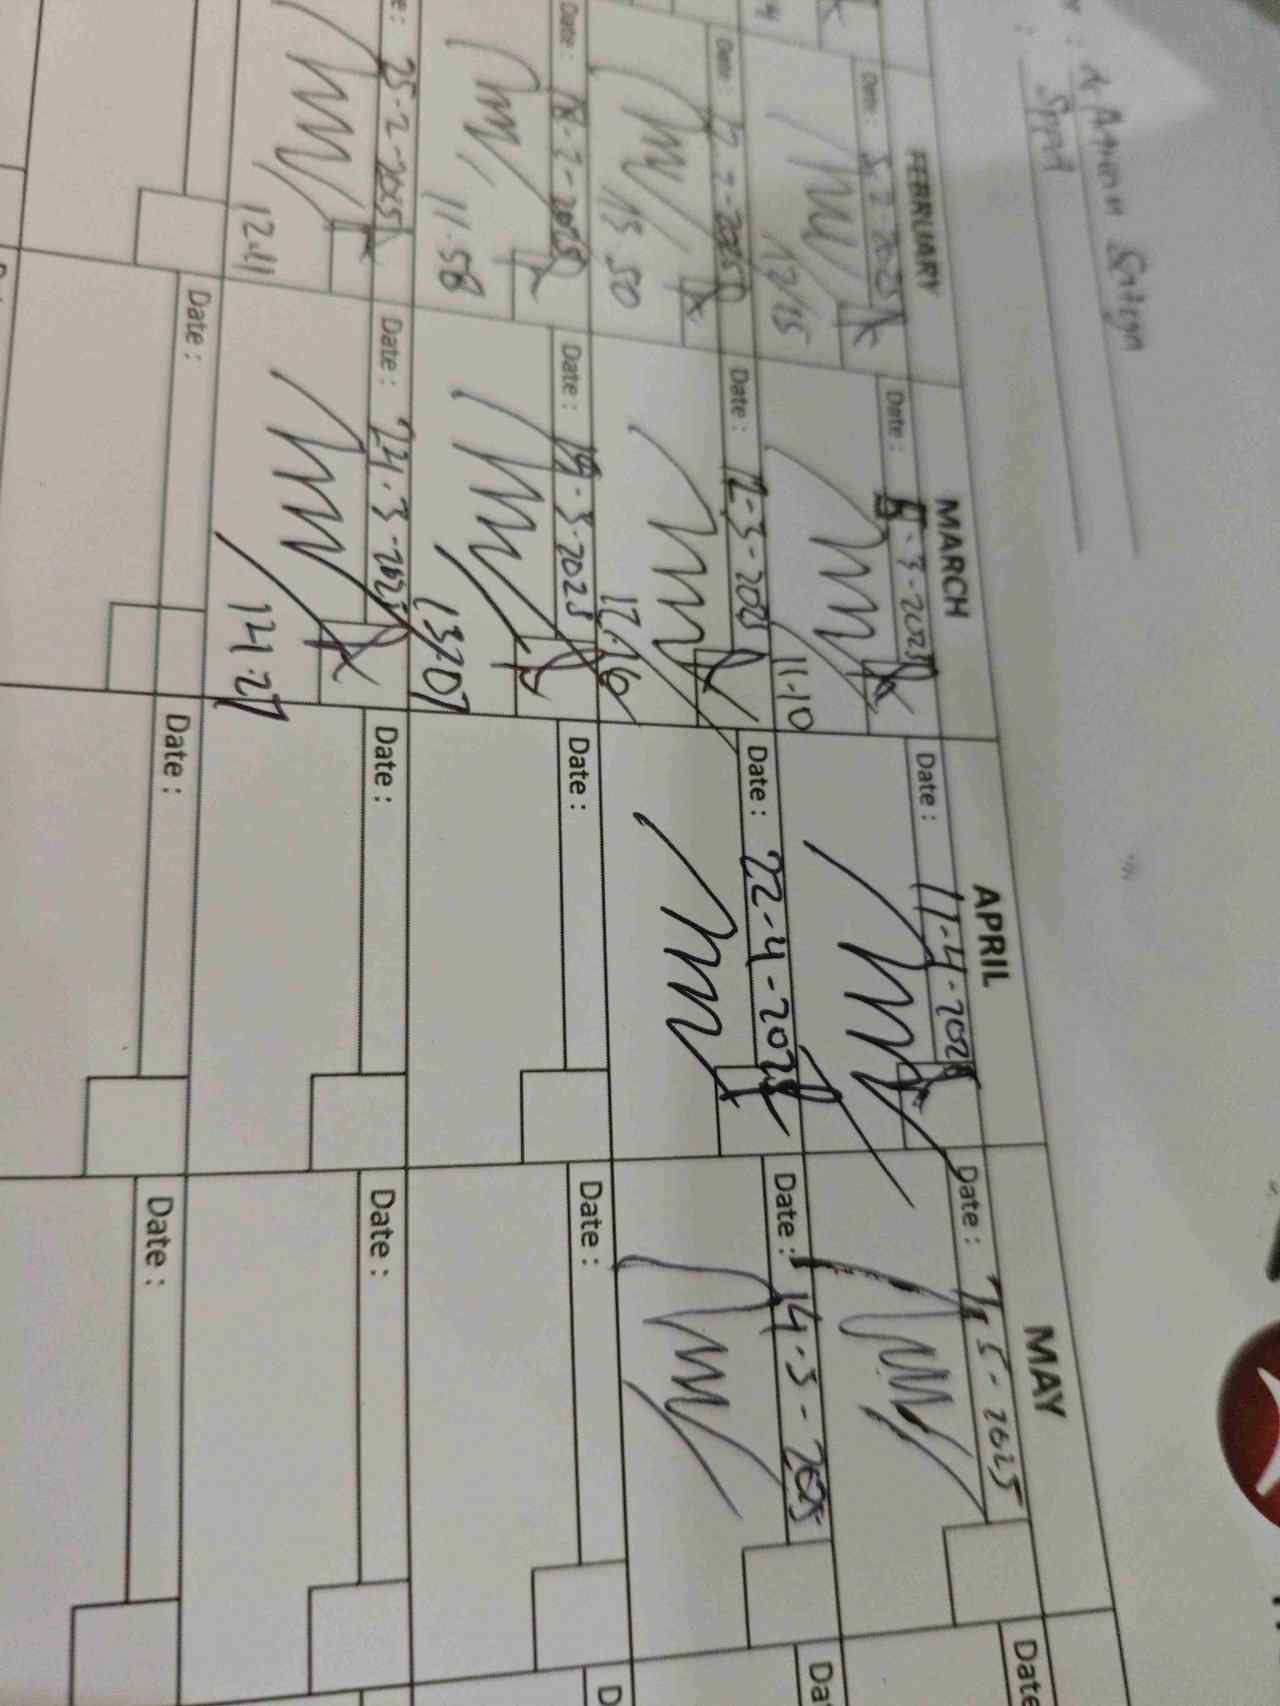 FEBRUARY
MARCH
APRIL
MAY
Date : 5-2-2025
12/15
Date : 5-3-2025
11-10
Date : 11-4-2025
Date : 7-5-2025
Date
Date : 12-2-2025
13.50
Date : 12-3-2025
12.16
Date : 22-4-2025
Date : 14-3-2025
Da
Date : 18-2-2025
11.58
Date : 19-3-2025
13.07
Date :
Date :
D
e : 25-2-2025
12.11
Date : 24-3-2025
14.27
Date :
Date :
Date :
Date :
Date :